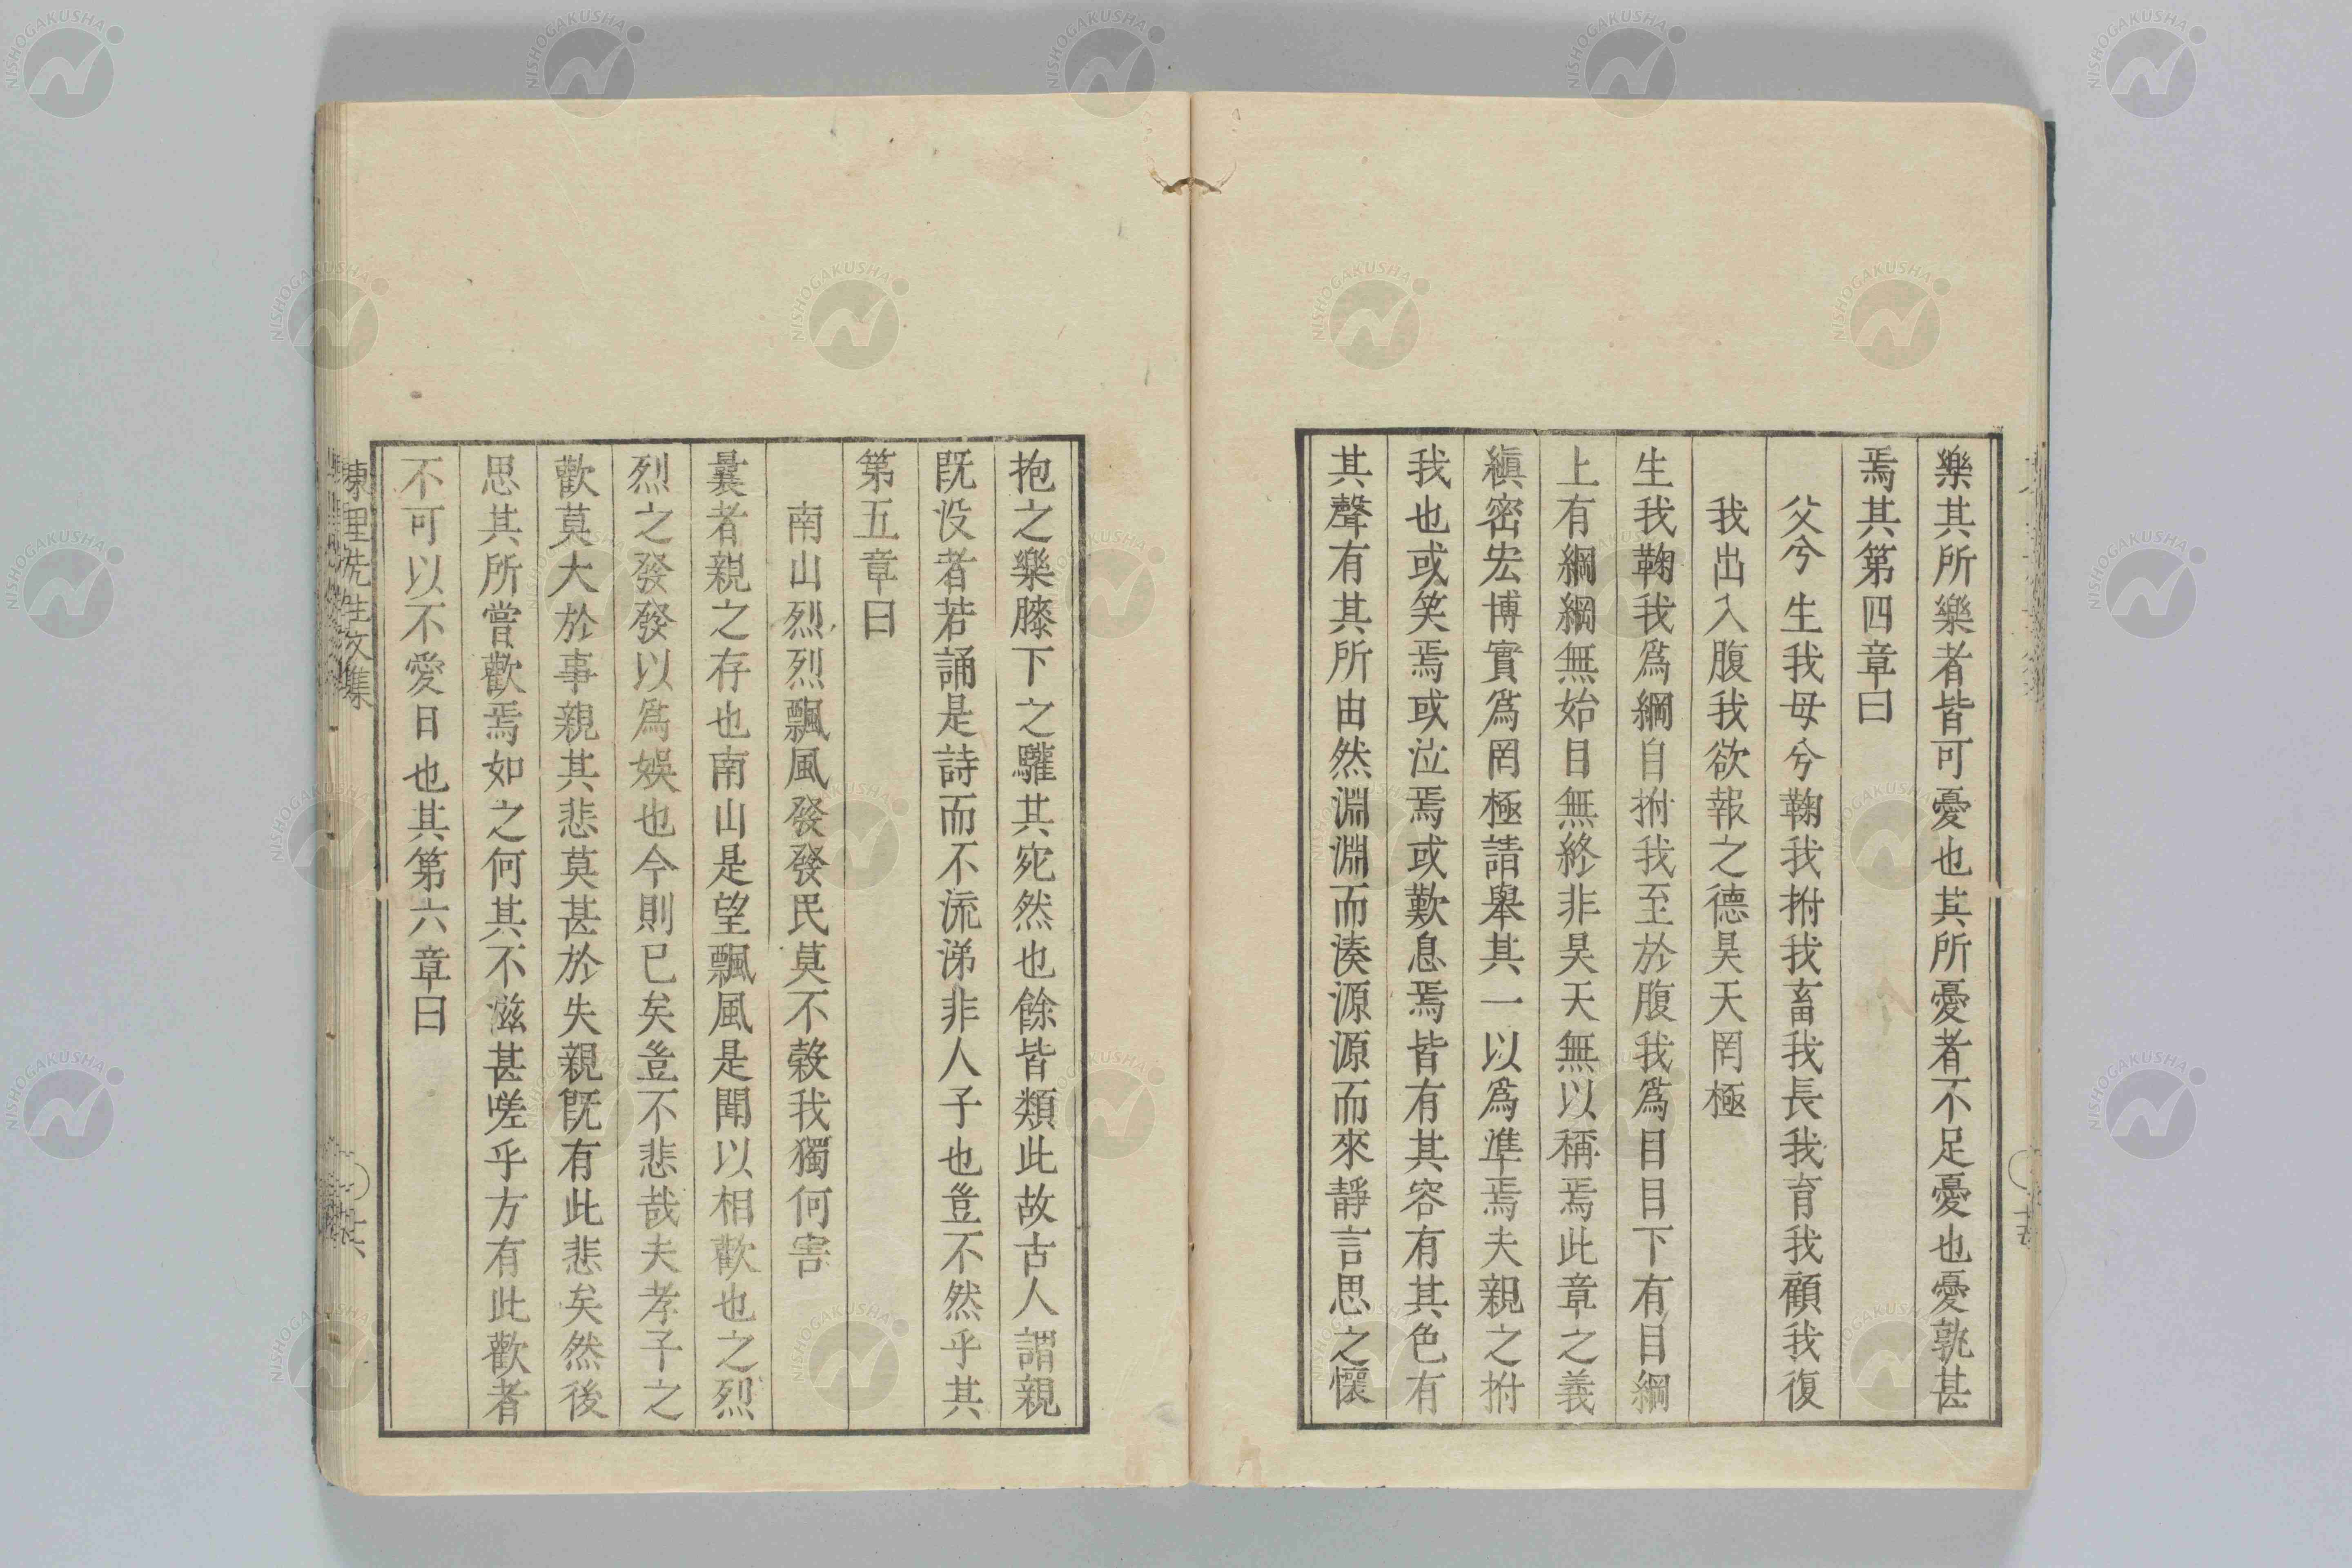 樂其所樂者皆可憂也其所憂者不足憂也憂孰甚
焉其第四章曰
父兮生我母兮鞠我拊我畜我長我育我顧我復
我出入腹我欲報之德昊天罔極
生我鞠我爲綱自拊我至於腹我爲目目下有目綱
上有綱綱無始目無終非昊天無以稱焉此章之義
縝密宏博實爲罔極請舉其一以爲準焉夫親之拊
我也或笑焉或泣焉或歎息焉皆有其容有其色有
其聲有其所由然淵淵而湊源源而來靜言思之懷
抱之樂膝下之驩其宛然也餘皆類此故古人謂親
既没者若誦是詩而不流涕非人子也豈不然乎其
第五章曰
南山烈烈飄風發發民莫不穀我獨何害
曩者親之存也南山是望飄風是聞以相歡也之烈
烈之發發以爲娛也今則已矣豈不悲哉夫孝子之
歡莫大於事親其悲莫甚於失親既有此悲矣然後
思其所嘗歡焉如之何其不滋甚嗟乎方有此歡者
不可以不愛日也其第六章曰
先生文集
NISHOGAKUSHA